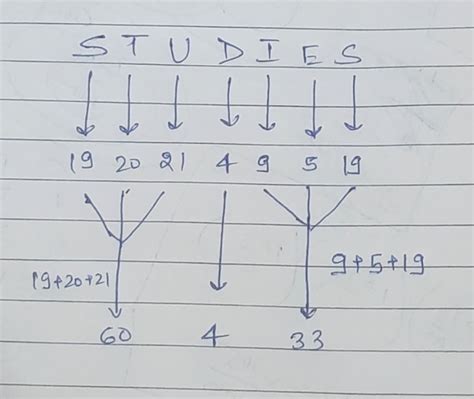 S T U D I E S
19 20 21 4 9 5 19
19+20+21
9+5+19
60 4 33